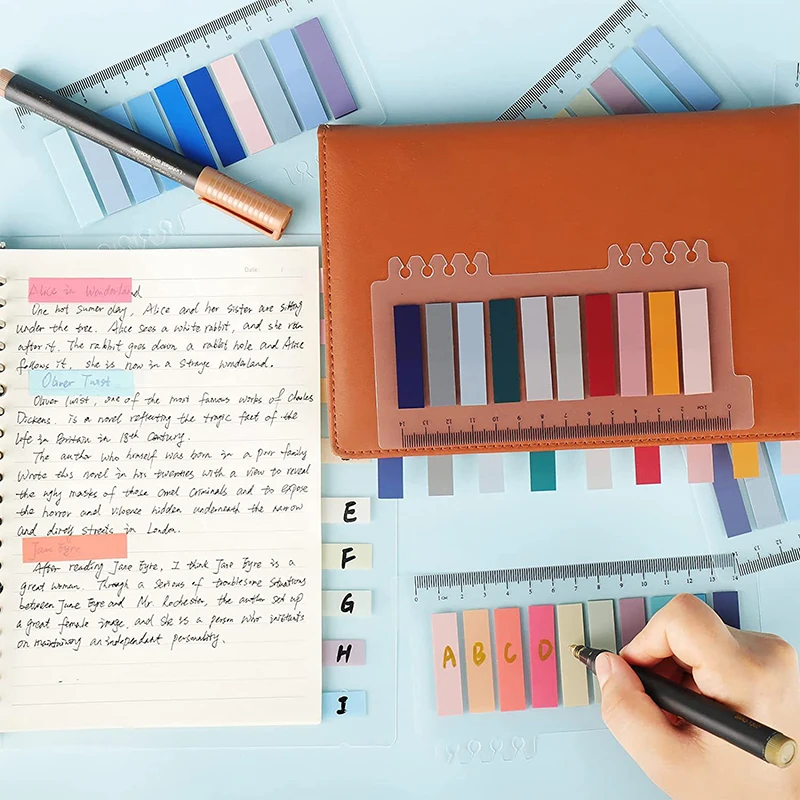 Date: /
Alice in Wonderland
One hot sumer day, Alice and her sister are sitting
under the tree. Alice sees a white rabbit, and she run
after it. The rabbit goes down a rabbit hole and Alice
follows it, she is now in a strange wonderland.
Oliver Twist
Oliver Twist, one of the most famous works of Charles
Dickens. is a novel reflecting the tragic fact of the
life in Britain in 18th Century.
The author who himself was born in a poor family
wrote this novel in his twenties with a view to reveal
the ugly masks of those cruel criminals and to expose
the horror and violence hidden underneath the narrow
and dirty streets in London.
Jane Eyre
After reading Jane Eyre, I think Jane Eyre is a
great woman. Through a serious of troublesome situations
between Jane Eyre and Mr. Rochester, the author set up
a great female image, and she is a person who insistants
on maintaining an independent personality.
E
F
G
H
I
14 13 12 11 10 9 8 7 6 5 4 3 2 1cm 0
0 1cm 2 3 4 5 6 7 8 9 10 11 12 13 14
A B C D